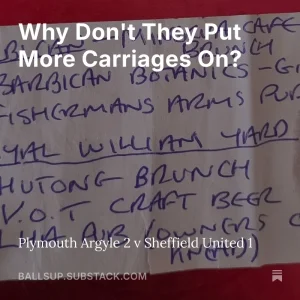 Why Don't They Put
More Carriages On?
CAFE
BRUNCH
BARBICAN BOTANICS - G
FISHERMANS ARMS PUB
YAL WILLIAM YARD
HUTONG BRUNCH
V.O.T CRAFT BEER
PUB (OWNERS
Plymouth Argyle 2 v Sheffield United 1
BALLSUP.SUBSTACK.COM